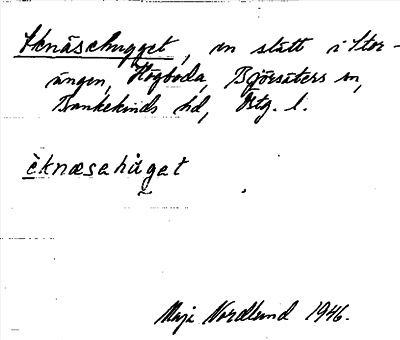 Eknäsehygget, en slätt i Stor-
ängen, Högboda, Björsäters sn,
Bankekinds hd, Östg. l.
èknæsahùget
Maja Nordlund 1946.